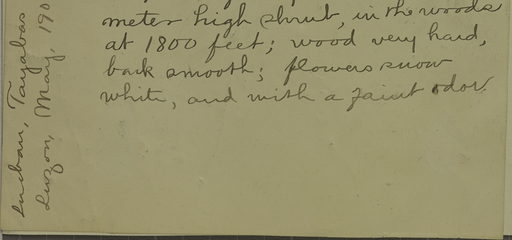 meter high shrub, in the woods
at 1800 feet; wood very hard,
bark smooth; flowers snow
white, and with a faint odor.
Lucban, Tayabas
Luzon, May, 190